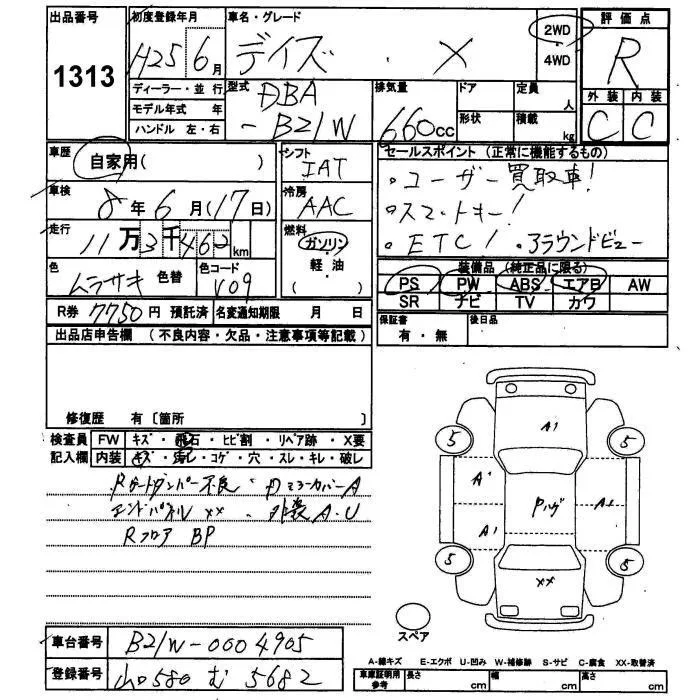 出品番号
1313
初度登録年月
H25 6月
車名・グレード
デイズ ・ X
2WD
4WD
評価点
R
外装 内装
C C
ディーラー・並行
モデル年式 年
ハンドル 左・右
型式
DBA
-B21W
排気量
660cc
ドア
形状
定員 人
積載 kg
車歴
自家用( )
シフト
IAT
セールスポイント (正常に機能するもの)
・ユーザー買取車!
・スマートキー!
・ETC! ・アラウンドビュー
車検
8年6月(17日)
冷房
AAC
走行
11万3千462km
燃料
ガソリン
軽油
色
ムラサキ 色替
色コード
V09
装備品 (純正品に限る)
PS PW ABS エアB AW
SR ナビ TV カワ
R券 7750円 預託済 名変通知期限 月 日
保証書
有・無
後日品
出品店申告欄 (不良内容・欠品・注意事項等記載)
修復歴 有〔箇所 〕
検査員 FW キズ・飛石・ヒビ割・リペア跡・X要
記入欄 内装 キズ・汚レ・コゲ・穴・スレ・キレ・破レ
Rゲートダンパー不良・
エンドパネル XX ・外装A・U
Rフロア BP
A1
5 5
A' A1
A1
5 5
XX
スペア
車台番号 B21W-0004905
登録番号 山口580 む 5682
A-線キズ E-エクボ U-凹み W-補修跡 S-サビ C-腐食 XX-取替済
車庫証明用参考 長さ cm 幅 cm 高さ cm